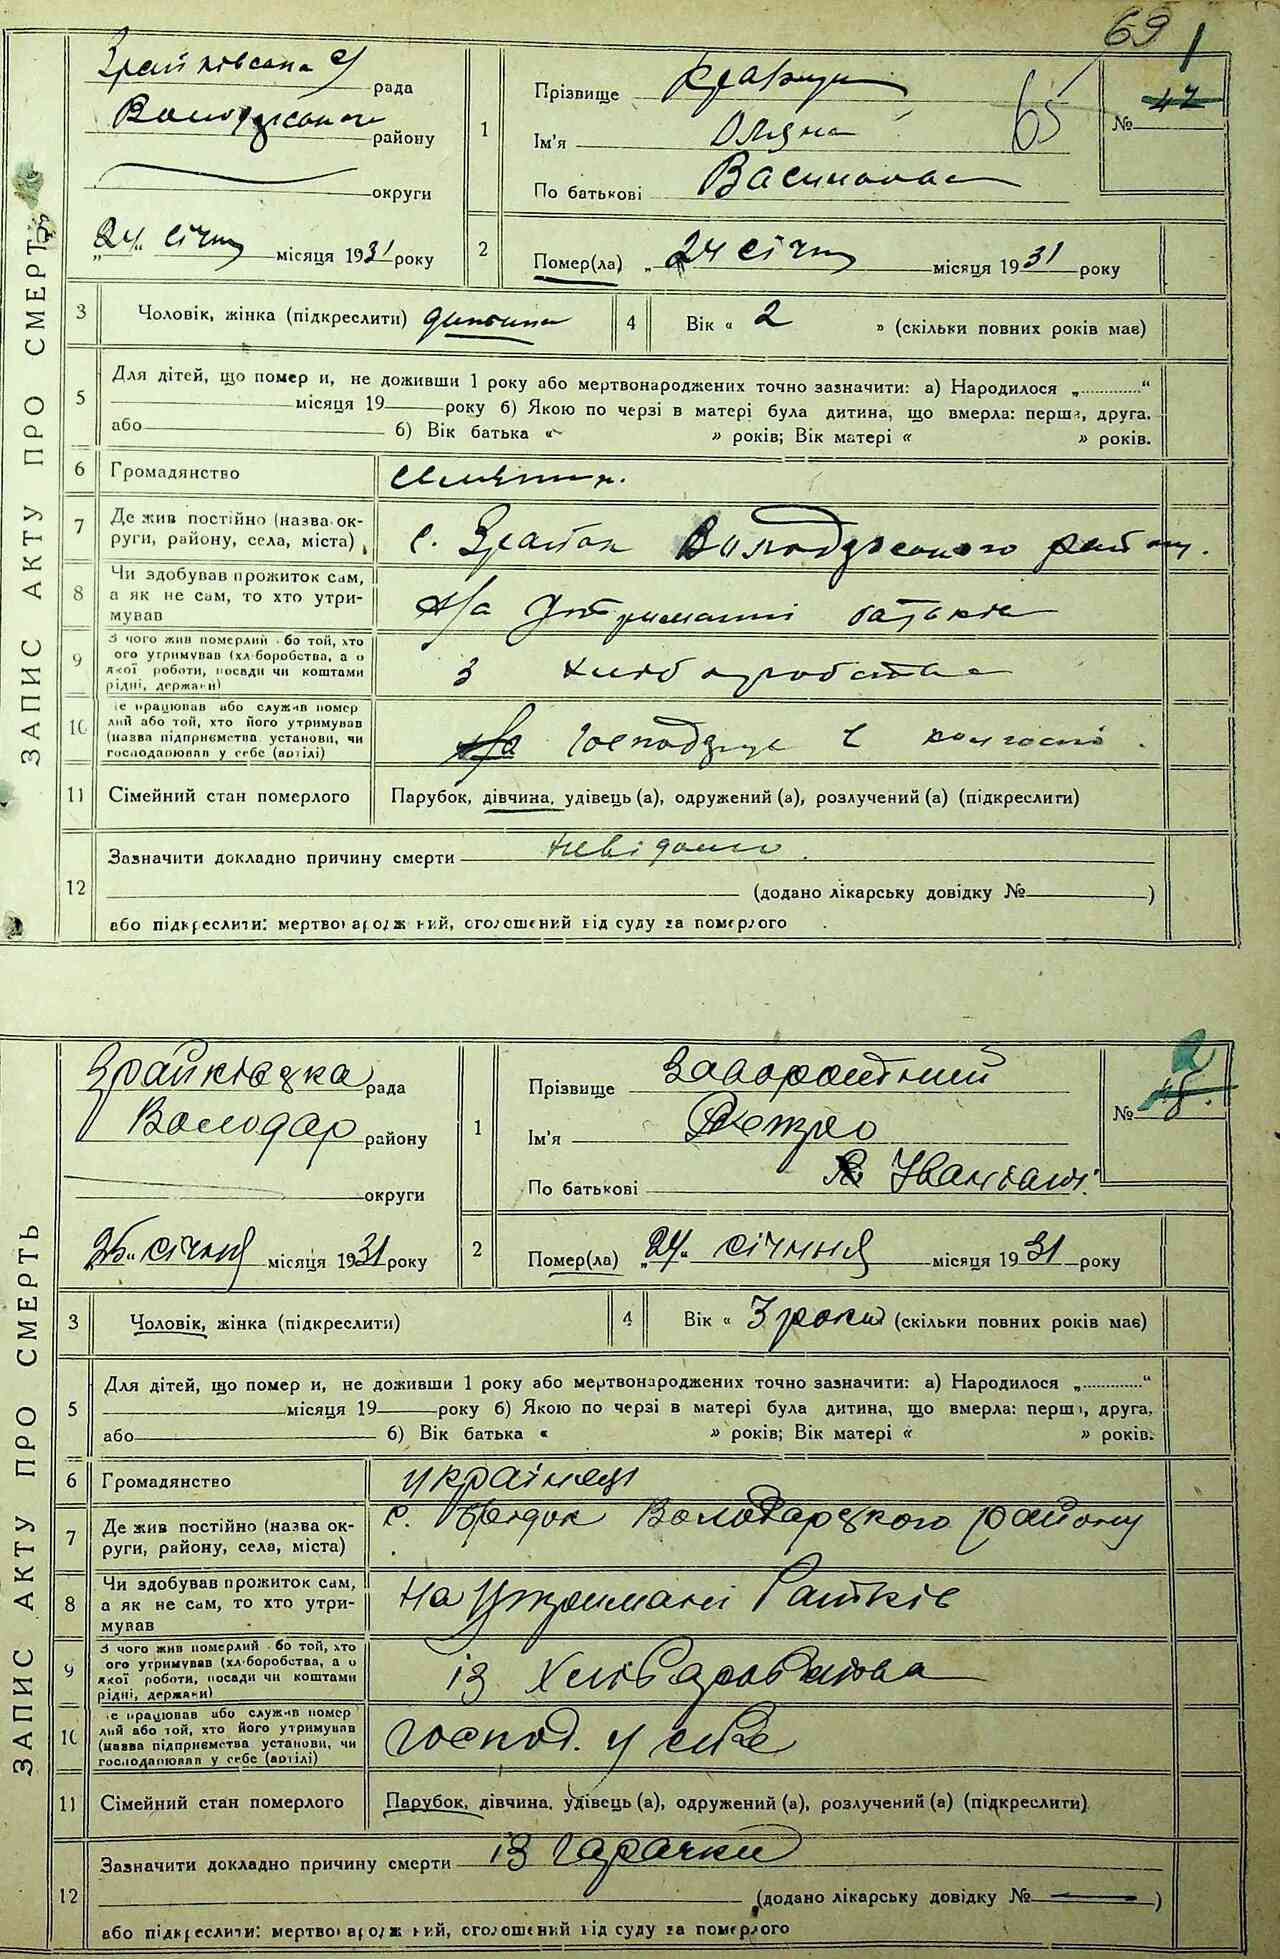 69 1
65
ЗАПИС АКТУ ПРО СМЕРТЬ
рада
району
округи
"24" січня місяця 1931 року
1
Прізвище
Ім'я
По батькові
№ 47
2
Помер(ла) „24 січня місяця 1931 року
3 Чоловік, жінка (підкреслити) дитина
4 Вік « 2 » (скільки повних років має)
5 Для дітей, що помер и, не доживши 1 року або мертвонароджених точно зазначити: а) Народилося „............“
місяця 19 року б) Якою по черзі в матері була дитина, що вмерла: перша, друга.
або 6) Вік батька « » років; Вік матері « » років.
6 Громадянство
7 Де жив постійно (назва ок-
руги, району, села, міста) с. Володарського району.
8 Чи здобував прожиток сам,
а як не сам, то хто утри-
мував на утриманні батьків
9 З чого жив померлий або той, хто
ого утримував (хл боробства, а о
якої роботи, посади чи коштами
рідні, держави) з хліборобства
10 е працював або служив помер
лий або той, хто його утримував
(назва підприємства установи, чи
господарював у себе (артілі) на господарює в колгоспі.
11 Сімейний стан померлого Парубок, дівчина, удівець (а), одружений (а), розлучений (а) (підкреслити)
12 Зазначити докладно причину смерти невідомо.
(додано лікарську довідку № )
або підкреслити: мертвонароджений, оголошений від суду за померлого
ЗАПИС АКТУ ПРО СМЕРТЬ
Зрайківзка рада
Володар району
округи
"25" січня місяця 1931 року
1
Прізвище
Ім'я Петро
По батькові Іванович
№ 2
2
Помер(ла) „24" січня місяця 1931 року
3 Чоловік, жінка (підкреслити)
4 Вік « 3 роки (скільки повних років має)
5 Для дітей, що помер и, не доживши 1 року або мертвонароджених точно зазначити: а) Народилося „............“
місяця 19 року б) Якою по черзі в матері була дитина, що вмерла: перші, друга,
або 6) Вік батька « » років; Вік матері « » років.
6 Громадянство украінец
7 Де жив постійно (назва ок-
руги, району, села, міста) с. Володарзкого району
8 Чи здобував прожиток сам,
а як не сам, то хто утри-
мував на утримані батків
9 З чого жив померлий або той, хто
ого утримував (хл боробства, а о
якої роботи, посади чи коштами
рідні, держави) із хліборобства
10 е працював або служив помер
лий або той, хто його утримував
(назва підприємства установи, чи
господарював у себе (артілі) господ. у себе
11 Сімейний стан померлого Парубок, дівчина, удівець (а), одружений (а), розлучений (а) (підкреслити)
12 Зазначити докладно причину смерти із гарячки
(додано лікарську довідку № — )
або підкреслити: мертвонароджений, оголошений від суду за померлого